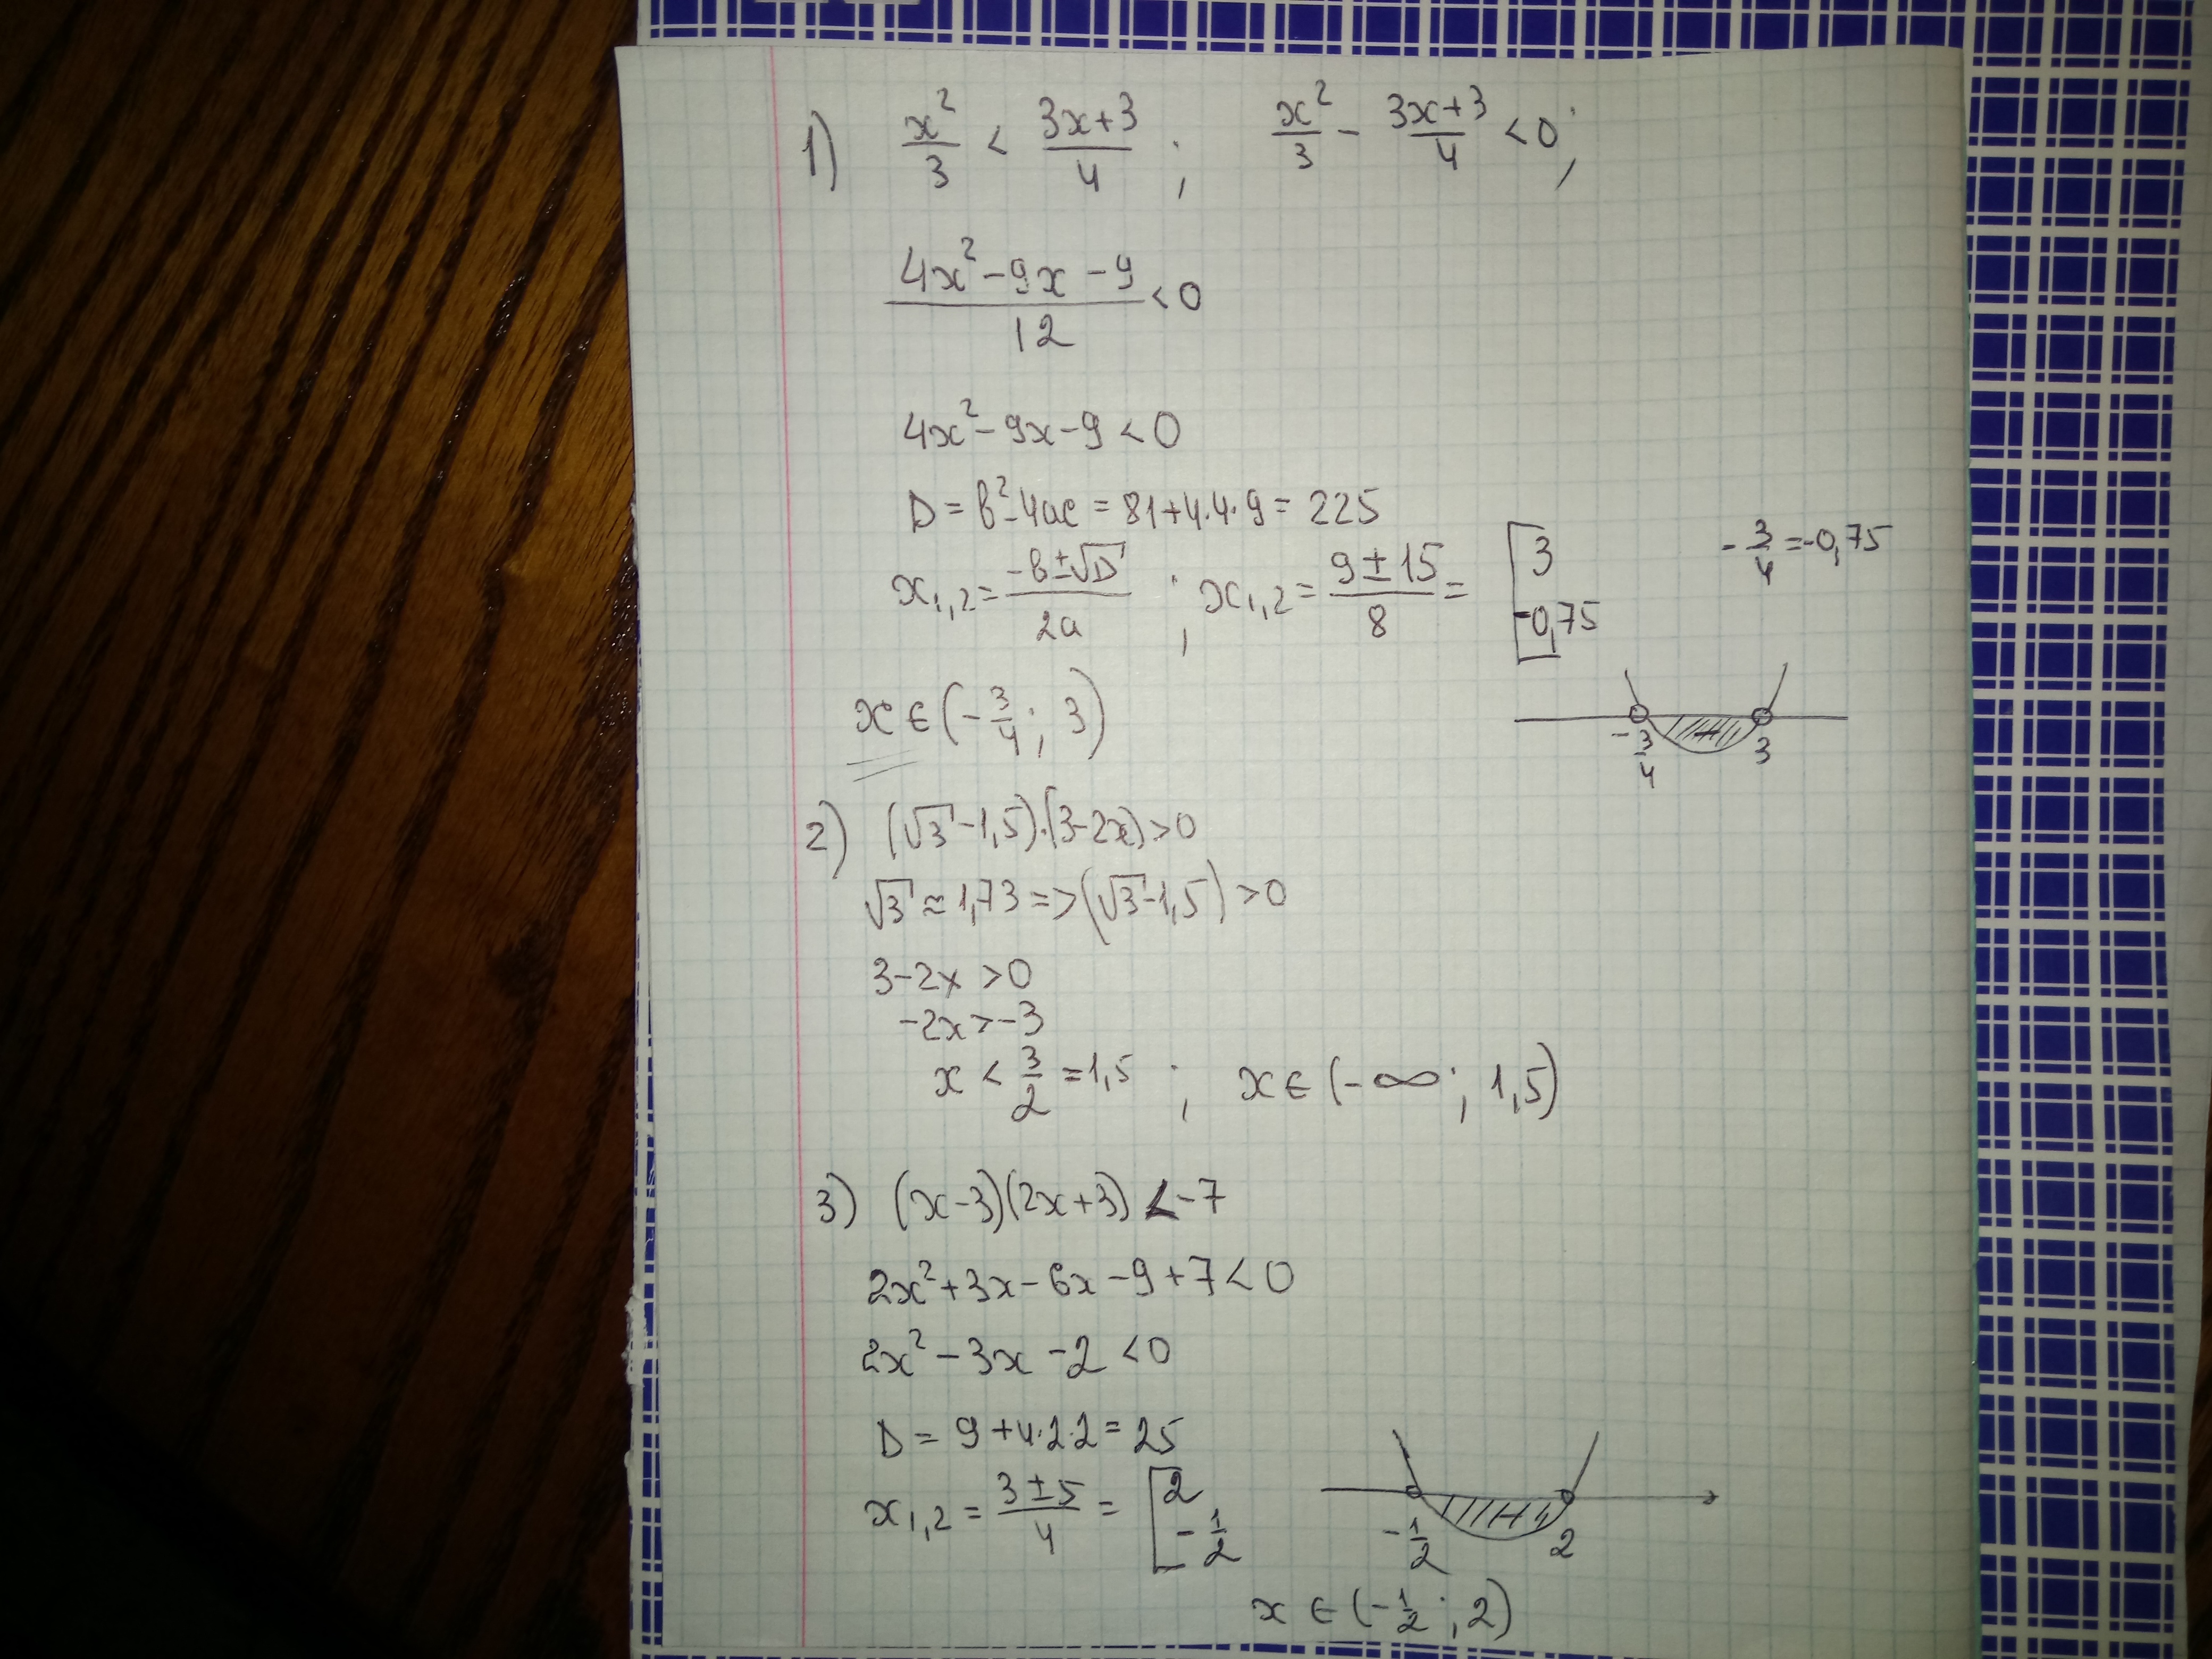 1) x²/3 < (3x+3)/4 ; x²/3 - (3x+3)/4 < 0;
(4x² - 9x - 9)/12 < 0
4x² - 9x - 9 < 0
D = b² - 4ac = 81 + 4·4·9 = 225
x₁,₂ = (-b ± √D)/2a ; x₁,₂ = (9 ± 15)/8 = [3 -0,75 -3/4 = -0,75
x ∈ (-3/4; 3) -3/4 3
2) (√3 - 1,5)·(3-2x) > 0
√3 ≈ 1,73 => (√3 - 1,5) > 0
3 - 2x > 0
-2x > -3
x < 3/2 = 1,5 ; x ∈ (-∞; 1,5)
3) (x-3)(2x+3) < -7
2x² + 3x - 6x - 9 + 7 < 0
2x² - 3x - 2 < 0
D = 9 + 4·2·2 = 25
x₁,₂ = (3 ± 5)/4 = [2 -1/2 -1/2 2
x ∈ (-1/2; 2)